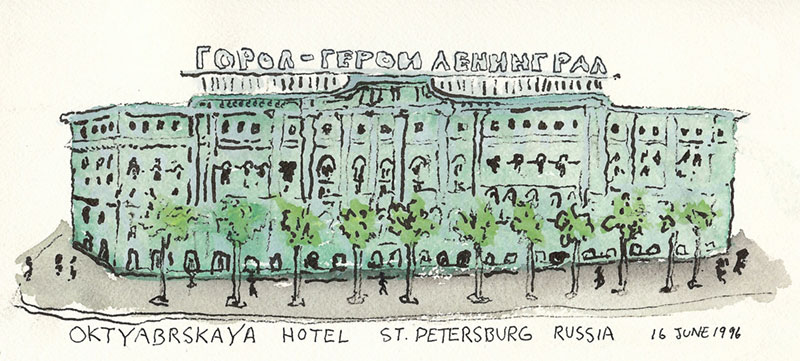 ГОРОЛ-ГЕРОИ ЛЕНИНГРАЛ
OKTYABRSKAYA HOTEL ST. PETERSBURG RUSSIA 16 JUNE 1996